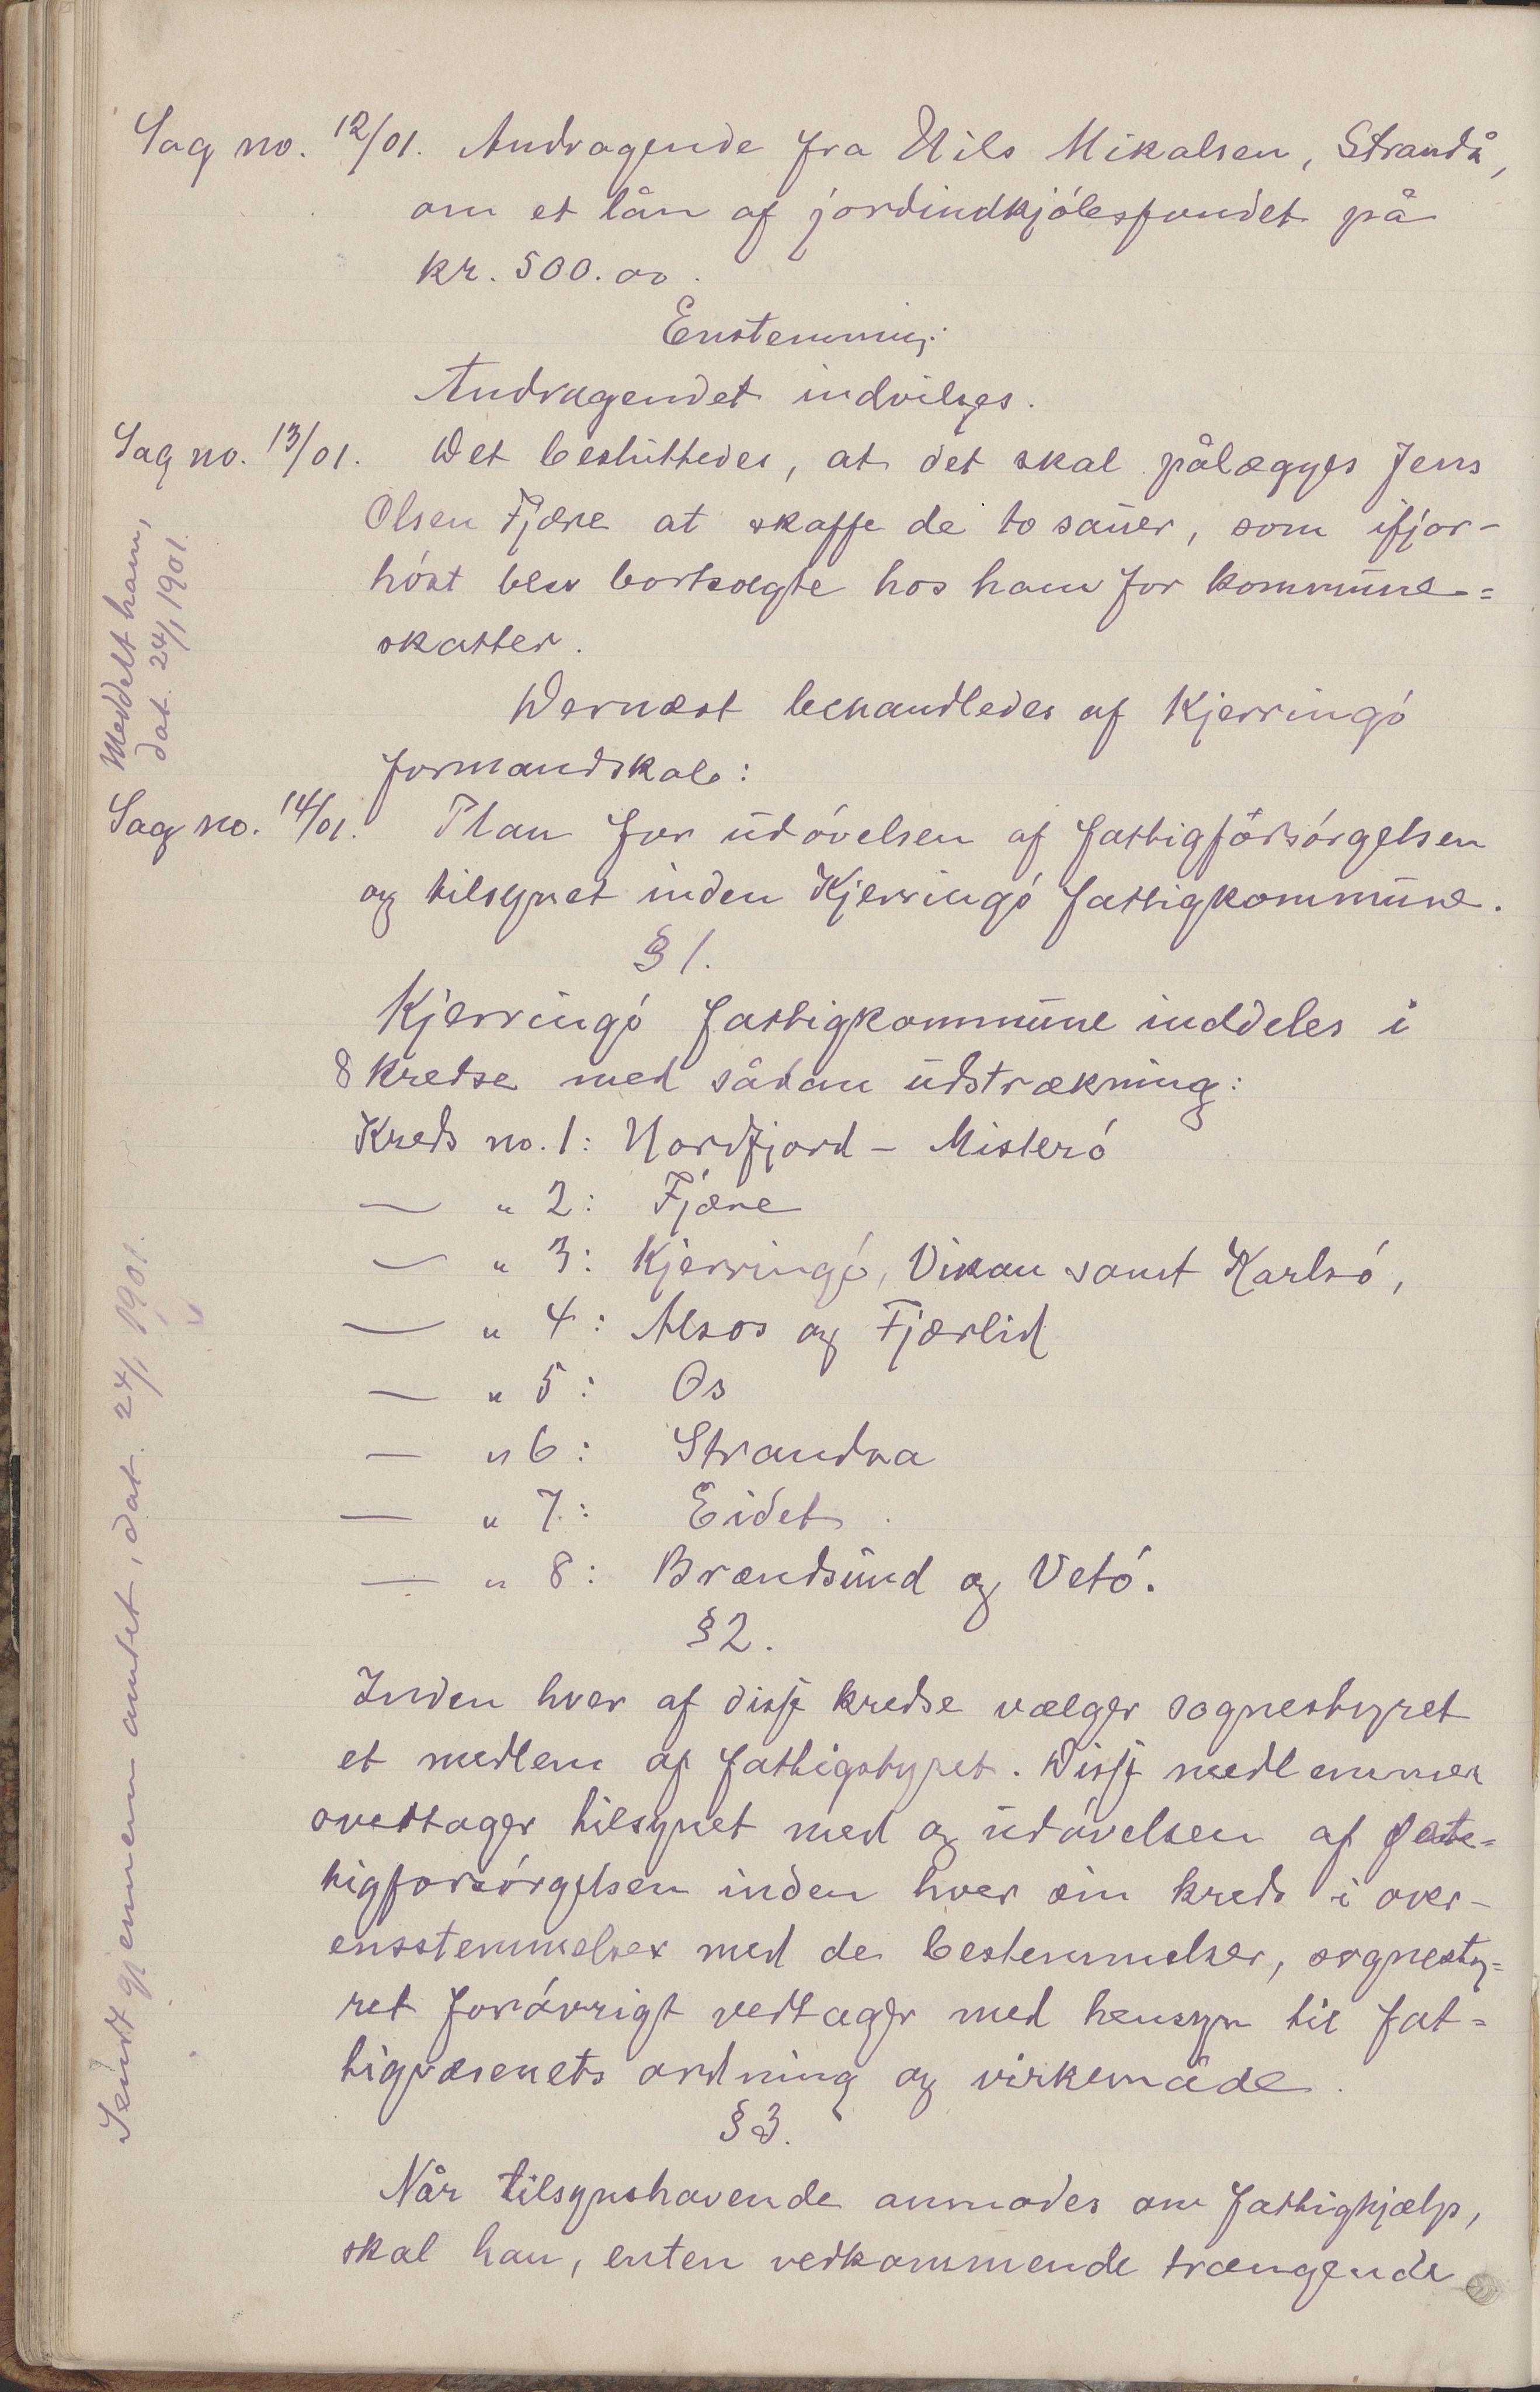 Sag no. 12/01. Andragende fra Nils Mikalsen, Strandå,
om et lån af jordindkjóbsfondet på
kr. 500.00.
Enstemmig:
Andragendet indvilges.
Sag no. 13/01. Det besluttedes, at det skal pålægges Jens
Olsen Fjære at skaffe de to sauer, som ifjor-
hóst blev bortsolgte hos ham for kommune=
skatter.
Meddelt ham,
dat. 24/1 1901.
Dernæst behandledes af Kjerringó
formandskab:
Sag no. 14/01. Plan for udóvelsen af fattigforsórgelsen
og tilsynet inden Kjerringó fattigkommune.
§ 1.
Kjerringó fattigkommune inddeles i
8 kredse med sådan udstrækning:
Kreds no. 1: Nordfjord - Misteró
— " 2: Fjære
— " 3: Kjerringó, Vikan samt Karlsó,
— " 4: Alsos og Fjærlid
— " 5: Os
— " 6: Strandaa
— " 7: Eidet
— " 8: Brændsund og Vetó.
§ 2.
Inden hver af disse kredse vælger sognestyret
et medlem af fattigstyret. Disse medlemmer
overtager tilsynet med og udóvelsen af fat=
tigforsórgelsen inden hver sin kreds i over-
ensstemmelse med de bestemmelser, sognesty=
ret forówrigt vedtager med hensyn til fat=
tigvæsenets ordning og virkemåde.
§ 3.
Når tilsynshavende anmodes om fattighjælp,
skal han, enten vedkommende trængende
Sendt gjennem amtet, dat. 24/1 1901.